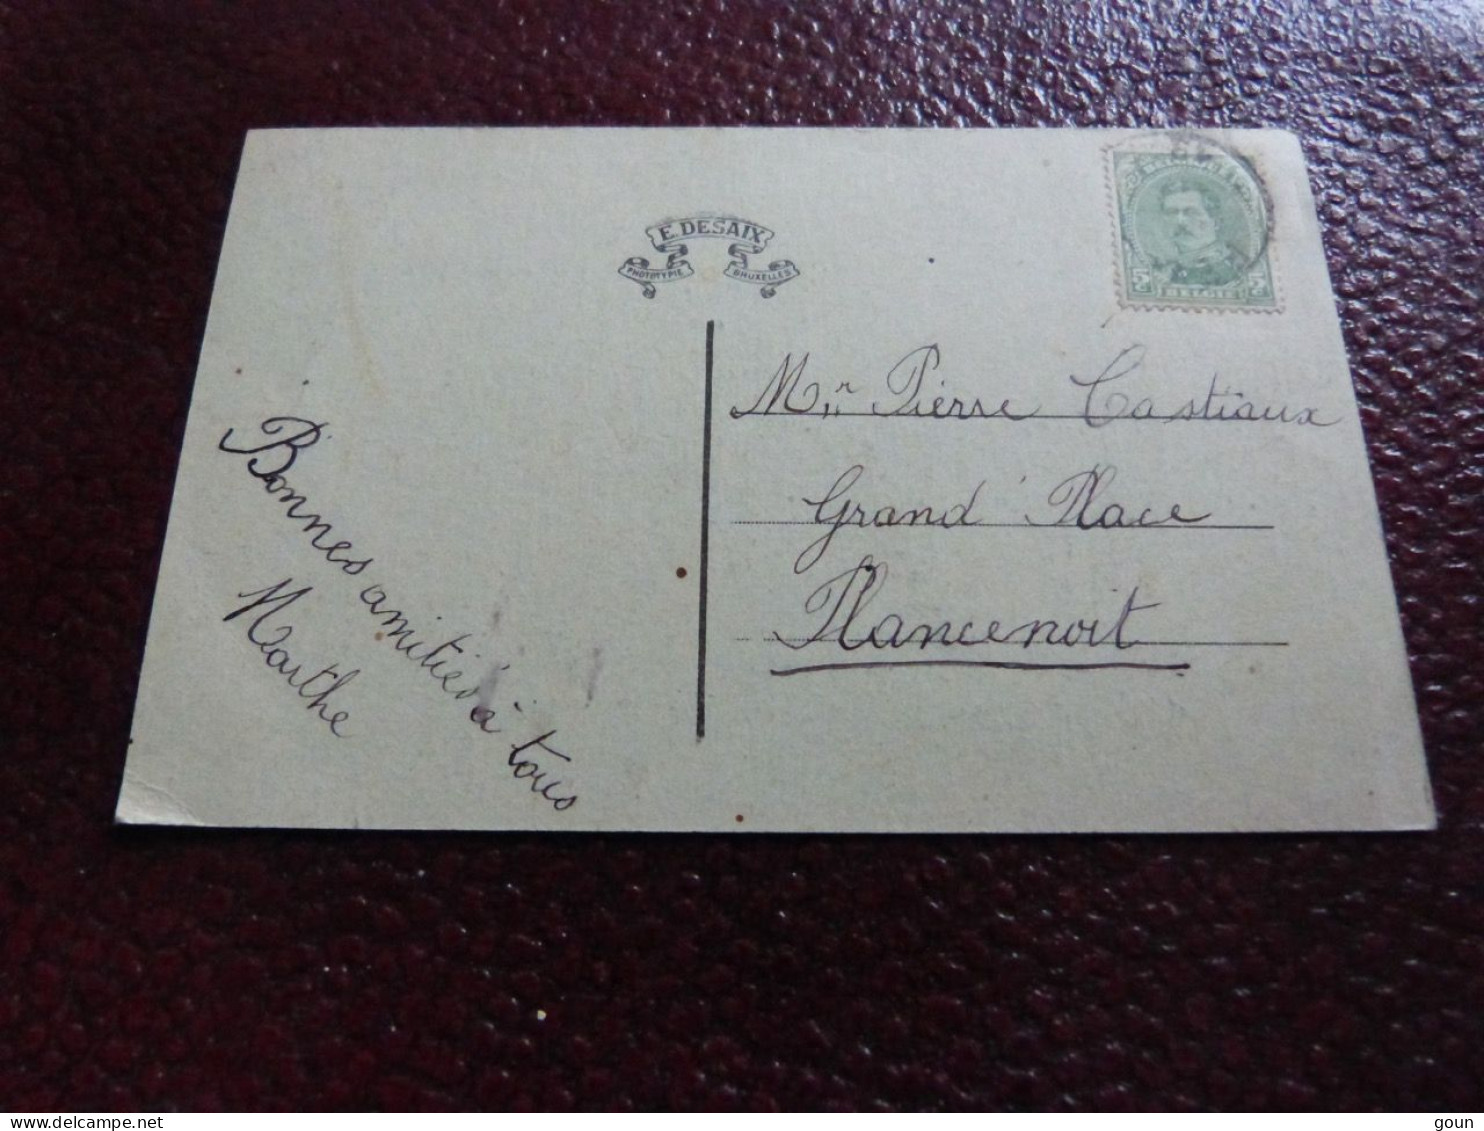 E. DESAIX
PHOTOTYPIE BRUXELLES
5 BELGIË 5
Mr Pierre Castiaux
Grand' Place
Plancenoit
Bonnes amitiés à tous
Marthe
delcampe.net
goun